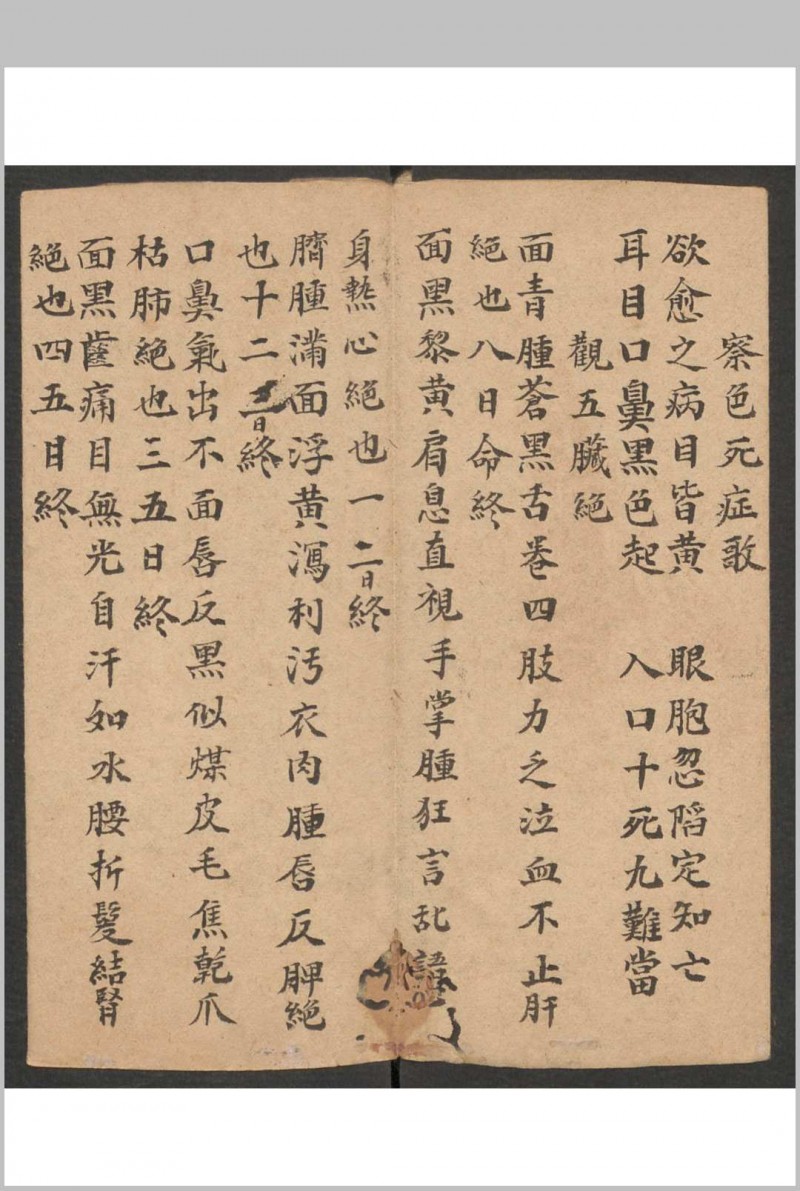 察色死症歌
欲愈之病目皆黄 眼胞忽陷定知亡
耳目口鼻黑色起 入口十死九難當
觀五臟絕
面青腫蒼黑舌卷四肢力乏泣血不止肝
絕也八日命終
面黑黎黄肩息直視手掌腫狂言乱語
身熱心絕也一二日終
臍腫滿面浮黄瀉利汚衣肉腫唇反脾絕
也十二日終
口鼻氣出不面唇反黑似煤皮毛焦乾爪
枯肺絕也三五日終
面黑齒痛目無光自汗如水腰折髮結腎
絕也四五日終